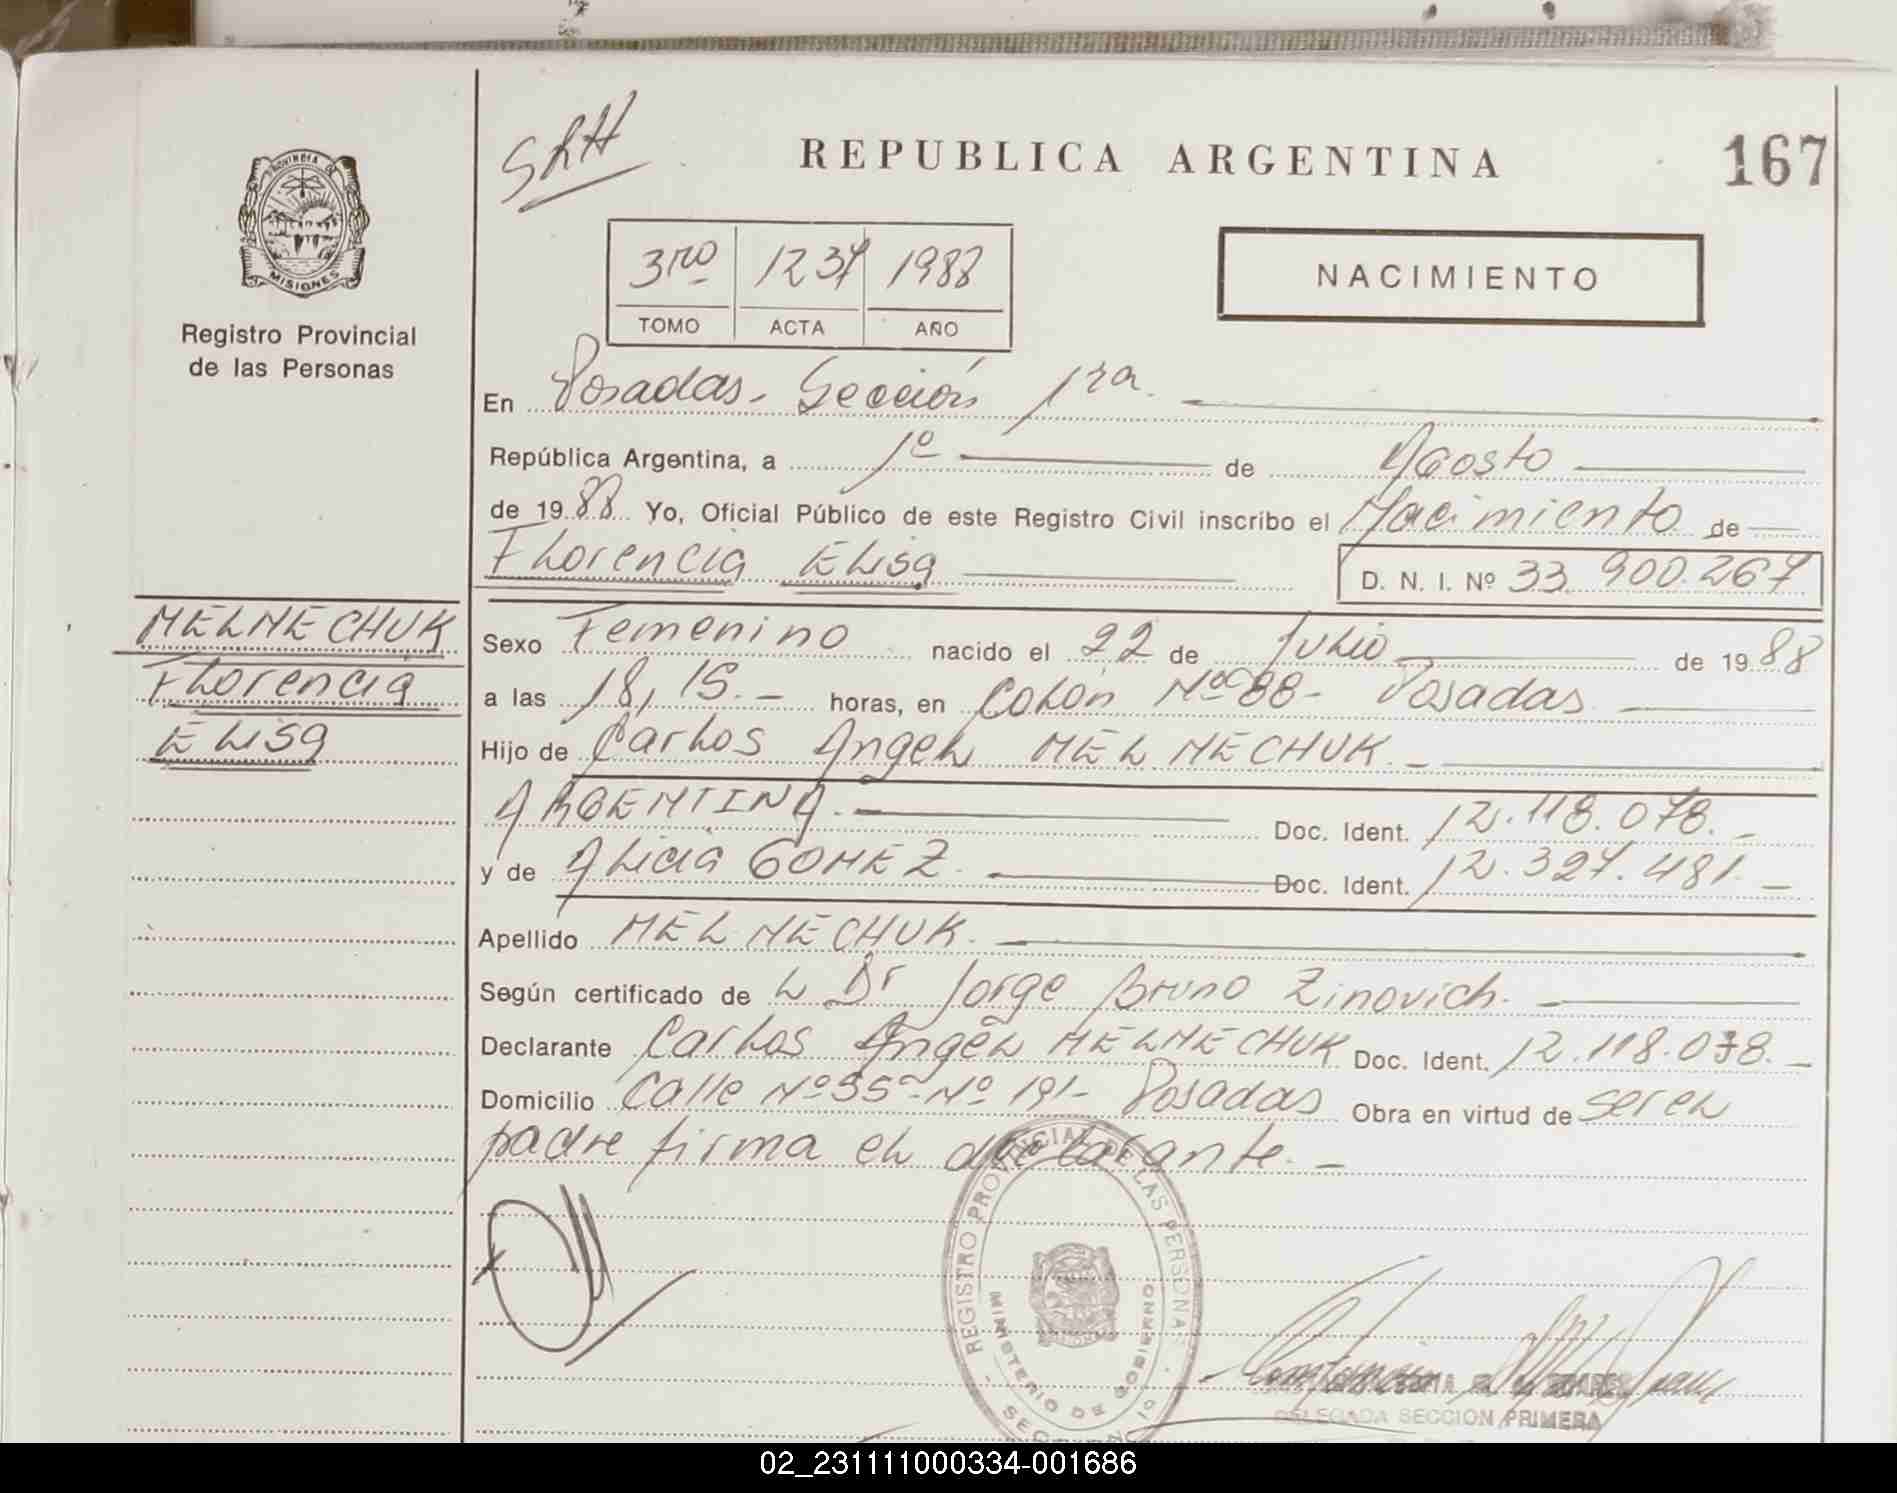 SRH
REPUBLICA ARGENTINA
167
PROVINCIA DE
MISIONES
Registro Provincial
de las Personas
3ro 1237 1988
TOMO ACTA AÑO
NACIMIENTO
En Posadas - Sección 1ra.
República Argentina, a 1º de Agosto
de 1988 Yo, Oficial Público de este Registro Civil inscribo el Nacimiento de
Florencia Elisa
D. N. I. Nº 33.900.267
MELNECHUK
Florencia
Elisa
Sexo Femenino nacido el 22 de Julio de 1988
a las 18,15.- horas, en Colón Nº 88 - Posadas
Hijo de Carlos Angel MELNECHUK.-
ARGENTINA.- Doc. Ident. 12.118.078.-
y de Alicia GOMEZ. Doc. Ident. 12.327.481.-
Apellido MELNECHUK.
Según certificado de l Dr Jorge Bruno Zinovich.-
Declarante Carlos Angel MELNECHUK Doc. Ident. 12.118.078.-
Domicilio Calle Nº 35 - Nº 191 - Posadas Obra en virtud de ser el
padre firma el declarante.-
REGISTRO PROVINCIAL DE LAS PERSONAS
MINISTERIO DE GOBIERNO
DELEGADA SECCION PRIMERA
02_231111000334-001686